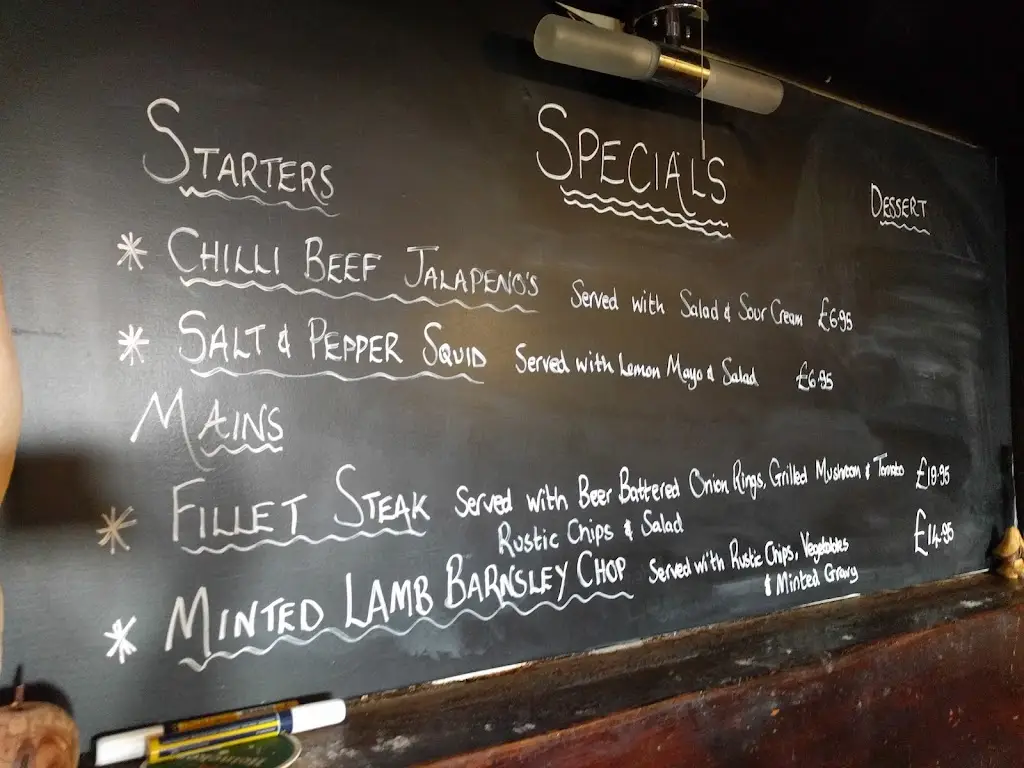 STARTERS
SPECIALS
DESSERT
* CHILLI BEEF JALAPENO'S Served with Salad & Sour Cream £6.95
* SALT & PEPPER SQUID Served with Lemon Mayo & Salad £6.95
MAINS
* FILLET STEAK Served with Beer Battered Onion Rings, Grilled Mushroom & Tomato £18.95
Rustic Chips & Salad
* MINTED LAMB BARNSLEY CHOP Served with Rustic Chips, Vegetables £14.95
& Minted Gravy